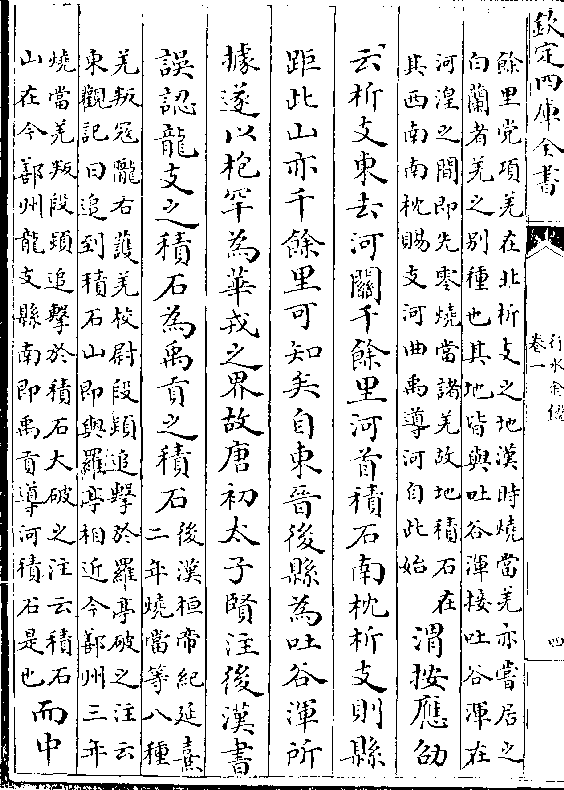 欽定四庫全書
行水金鑑
卷一
四
餘里党項羌在北析支之地漢時燒當羌亦嘗居之
白蘭者羌之别種也其地皆與吐谷渾接吐谷渾在
河湟之間即先零燒當諸羌故地積石在
其西南南枕賜支河曲禹導河自此始
渭按應劭
云析支東去河關千餘里河首積石南枕析支則縣
距此山亦千餘里可知矣自東晉後縣為吐谷渾所
據遂以枹罕為華戎之界故唐初太子賢注後漢書
誤認龍支之積石為禹貢之積石
後漢桓帝紀延熹
二年燒當等八種
羌叛寇隴右護羌校尉段熲追擊於羅亭破之注云
東觀記曰追到積石山即與羅亭相近今鄯州三年
燒當羌叛段熲追擊於積石大破之注云積石
山在今鄯州龍支縣南即禹貢導河積石是也
而中